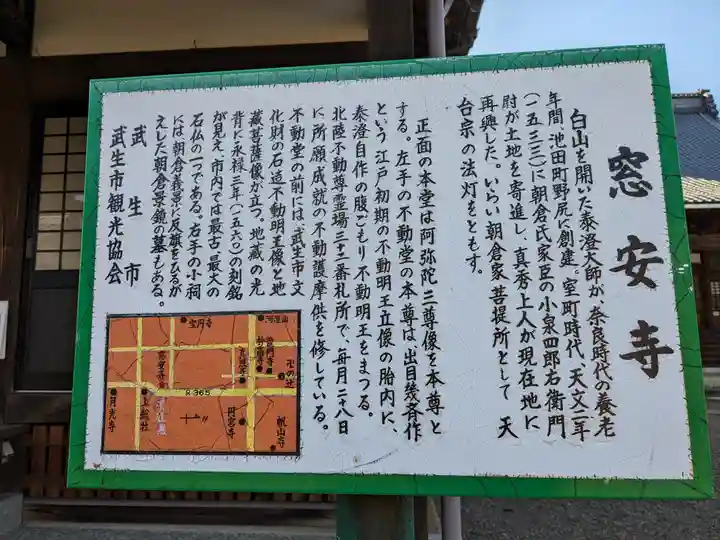 窓安寺
白山を開いた泰澄大師が、奈良時代の養老
年間 池田町野尻に創建。室町時代、天文二年
(一五三三)に朝倉氏家臣の小泉四郎右衛門
尉が土地を寄進し、真秀上人が現在地に
再興した。いらい朝倉家菩提所として 天
台宗の法灯をともす。
正面の本堂は阿弥陀三尊像を本尊と
する。左手の不動堂の本尊は、出目幾斉作
という江戸初期の不動明王立像の胎内に、
泰澄自作の腹ごもり不動明王をまつる。
北陸不動尊霊場三十二番札所で、毎月二八日
に所願成就の不動護摩供を修している。
不動堂の前には、武生市文
化財の石造不動明王像と地
蔵菩薩像が立つ。地蔵の光
背に永禄三年(一五六〇)の刻銘
が見え、市内では最古、最大の
石仏の一つである。右手の小祠
には朝倉義景に反旗をひるが
えした朝倉景鏡の墓もある。
武生市
武生市観光協会
宝円寺
卍の辻
R365
上総社
月光寺
円宮寺
帆山寺